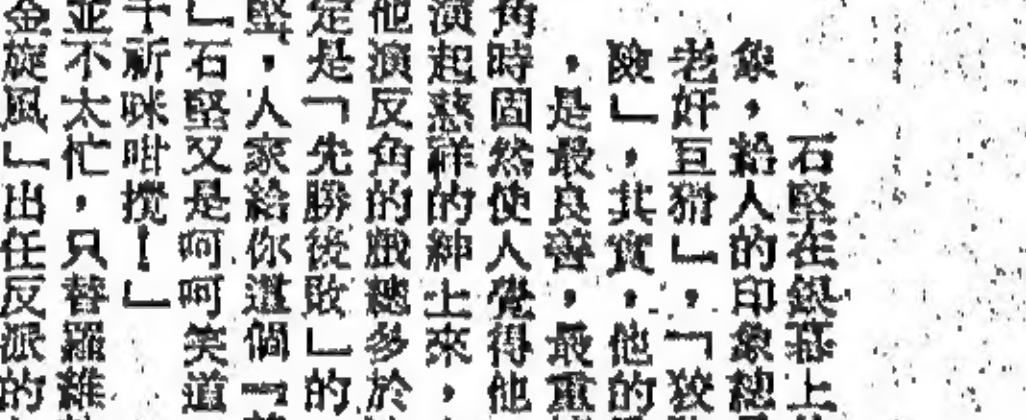 石堅在銀幕上
象，給人的印象總
老奸巨猾」，「狡
險」，其實，他的
，是最良善，最重
角時固然使人覺得他
演起慈祥的紳士來，
他演反角的戲總多於
定是「先勝後敗」的
堅，人家給你這個「
」石堅又是呵呵笑道
于祈咪咁攪！」
並不太忙，只替羅維
金旋風」出任反派的